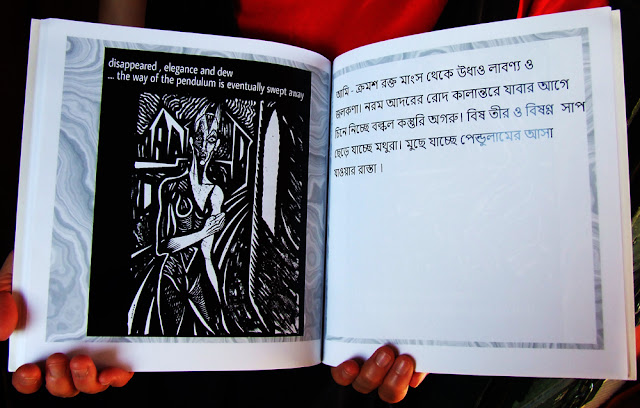 disappeared , elegance and dew
... the way of the pendulum is eventually swept away
আমি - ক্রমশ রক্ত মাংস থেকে উধাও লাবণ্য ও
জলকণা। নরম আদরের রোদ কালান্তরে যাবার আগে
চিনে নিচ্ছে বল্কল কস্তুরি অগরু। বিষ তীর ও বিষণ্ণ সাপ
ছেড়ে যাচ্ছে মথুরা। মুছে যাচ্ছে পেন্ডুলামের আসা
যাওয়ার রাস্তা ।